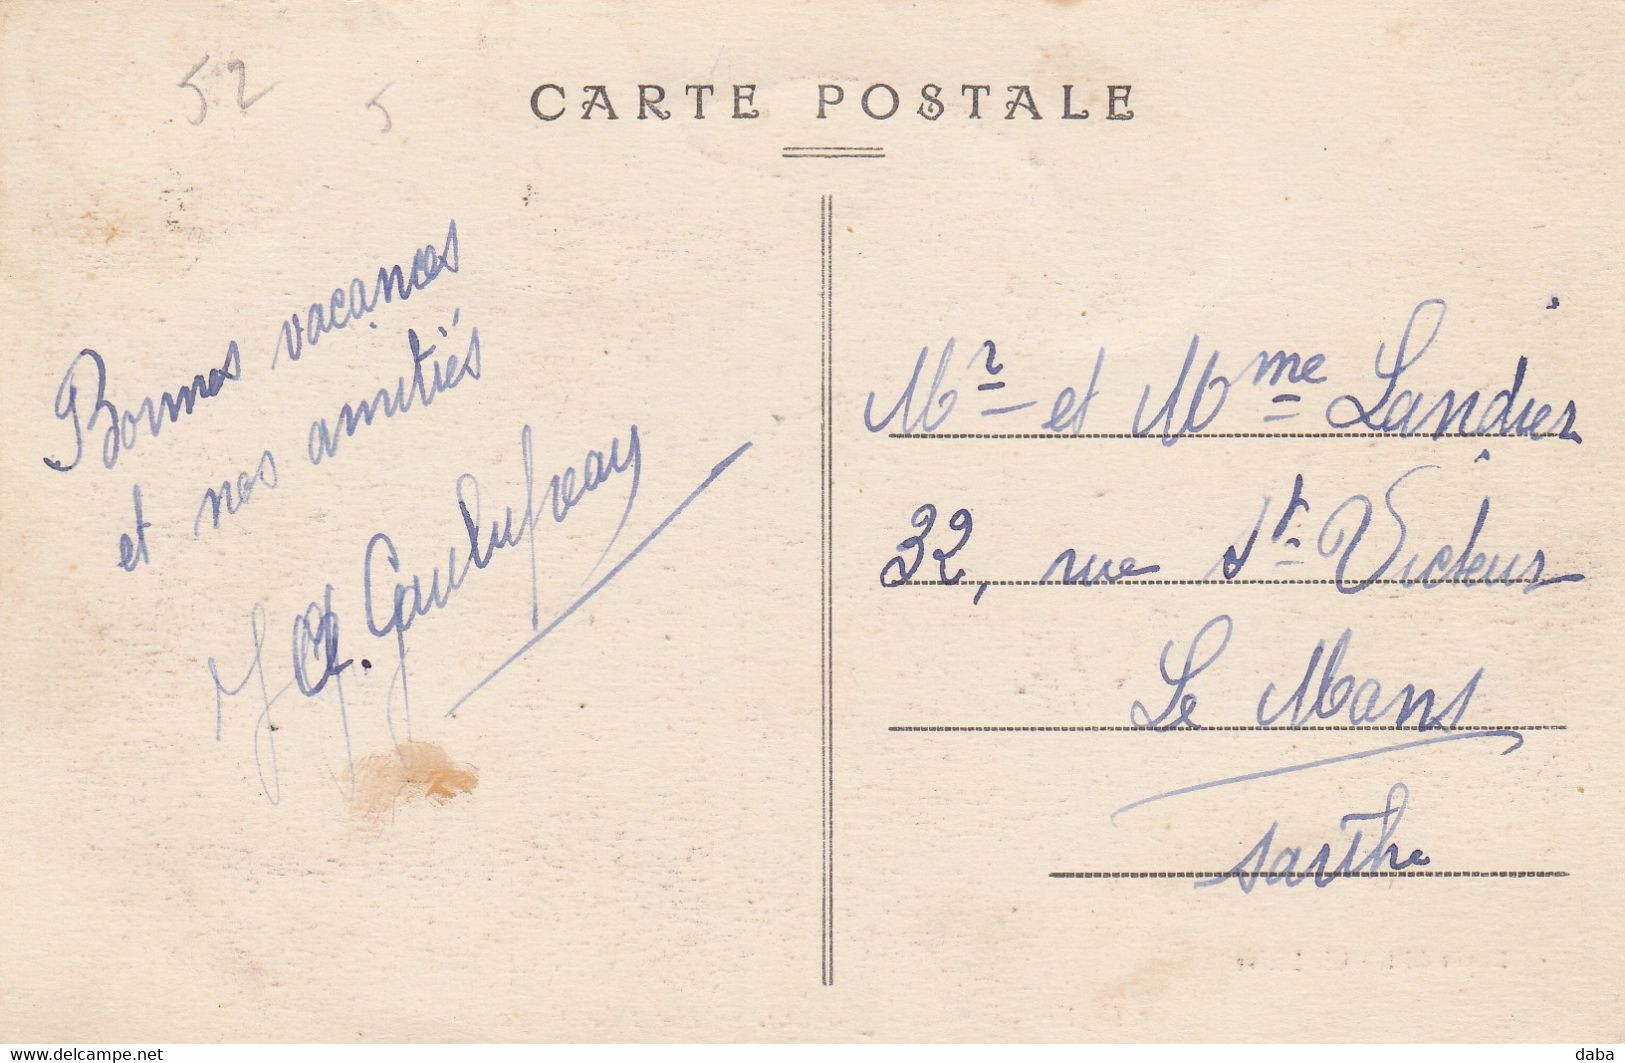 52
5
CARTE POSTALE
Bonnes vacances
et nos amitiés
Mr et Mme Landier
32, rue St Victeur
Le Mans
Sarthe
www.delcampe.net
daba